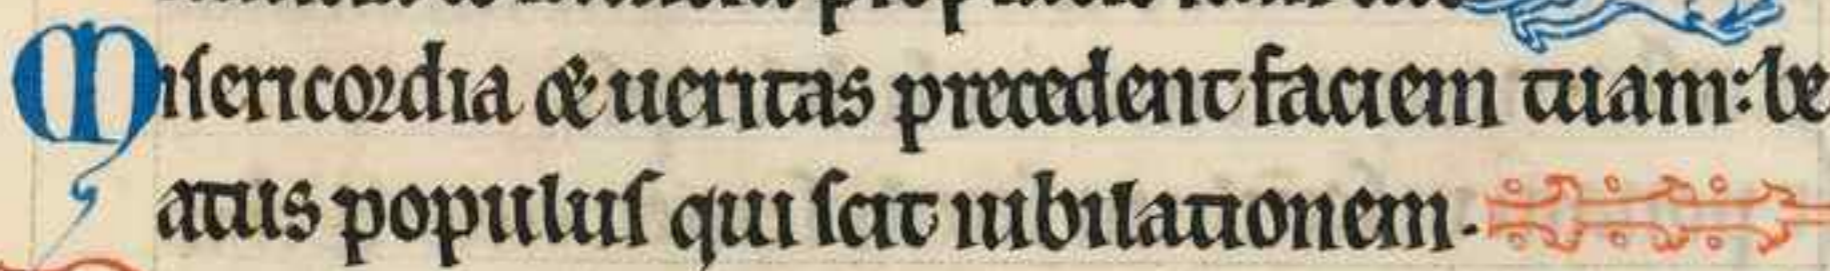 Misericordia & ueritas precedent faciem tuam: be
atus populus qui scit iubilationem.